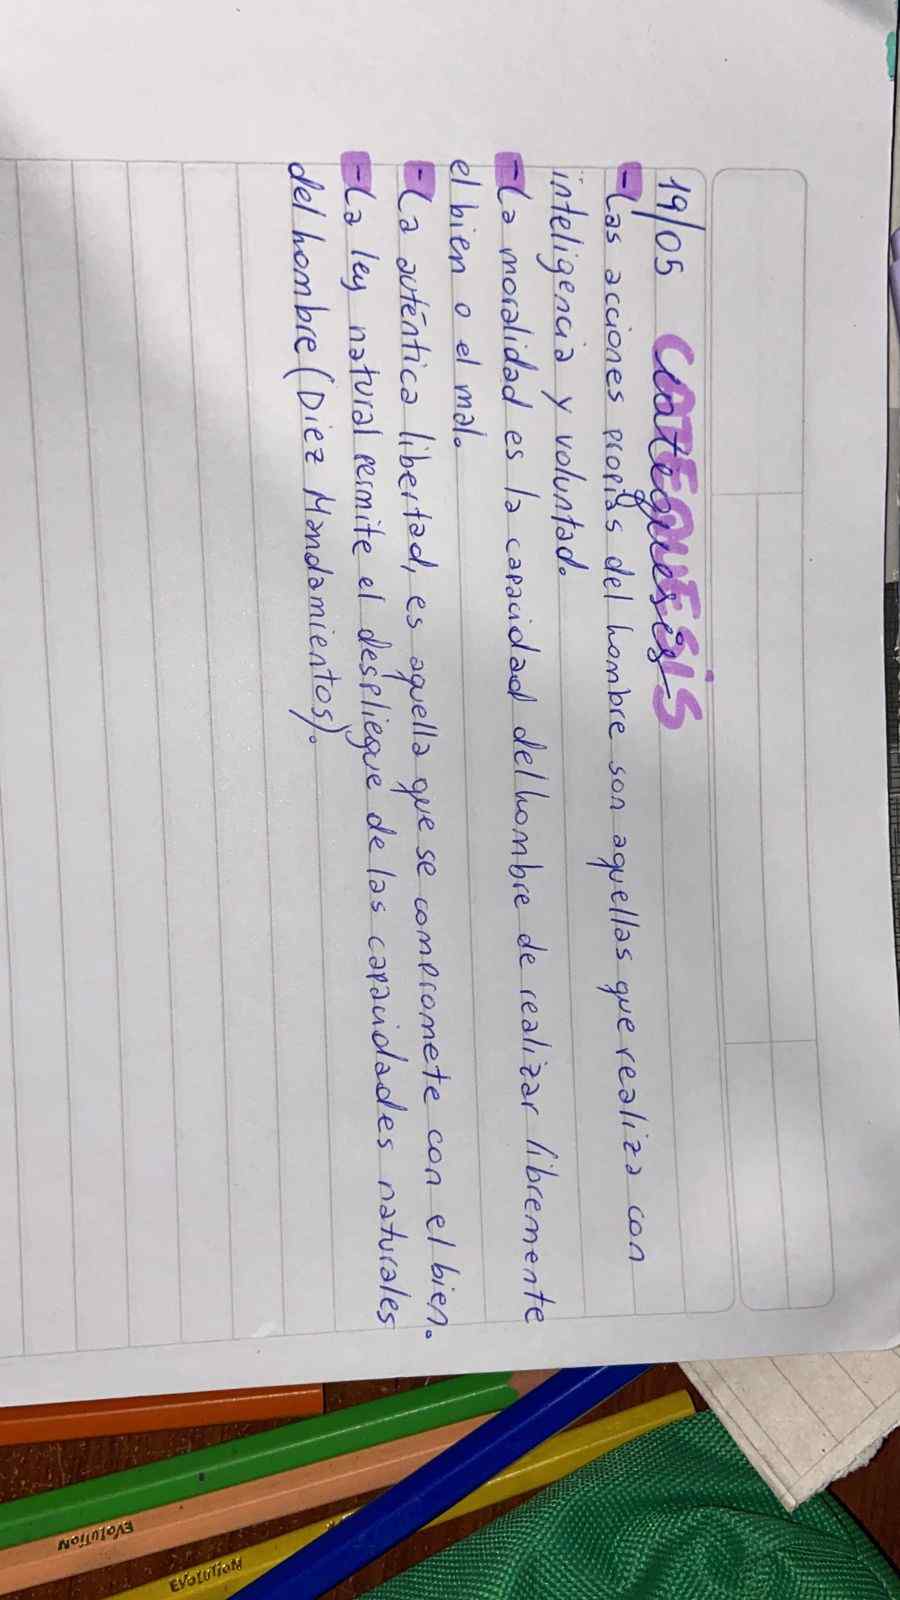 19/05 CATEQUESIS
- Las acciones propias del hombre son aquellas que realiza con
inteligencia y voluntad.
- La moralidad es la capacidad del hombre de realizar libremente
el bien o el mal.
- La auténtica libertad, es aquella que se compromete con el bien.
- La ley natural permite el despliegue de las capacidades naturales
del hombre (Diez Mandamientos).
EVOLUTION
EVOLUTION